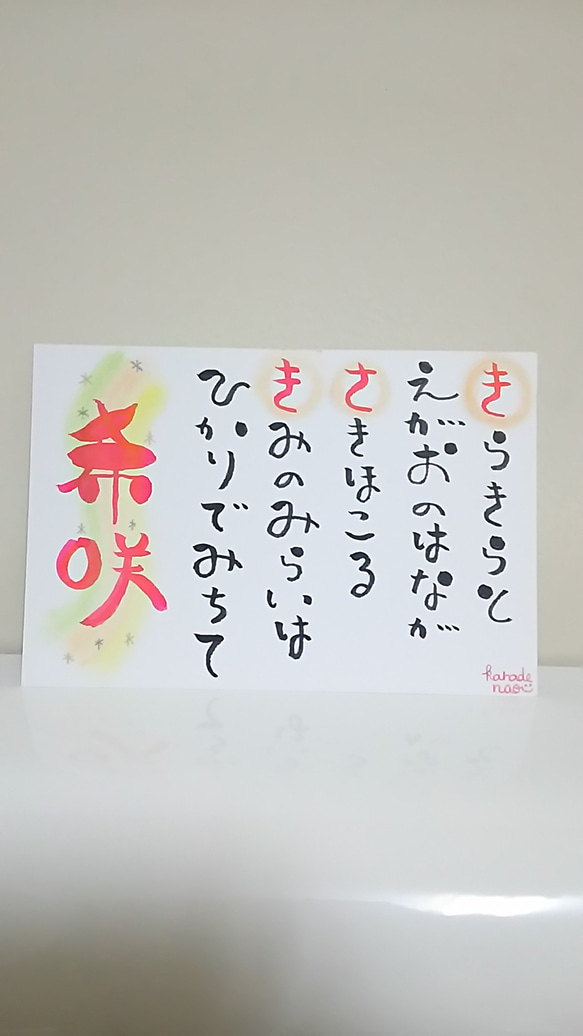 きらきらと
えがおのはなが
さきほこる
きみのみらいは
ひかりでみちて
希咲